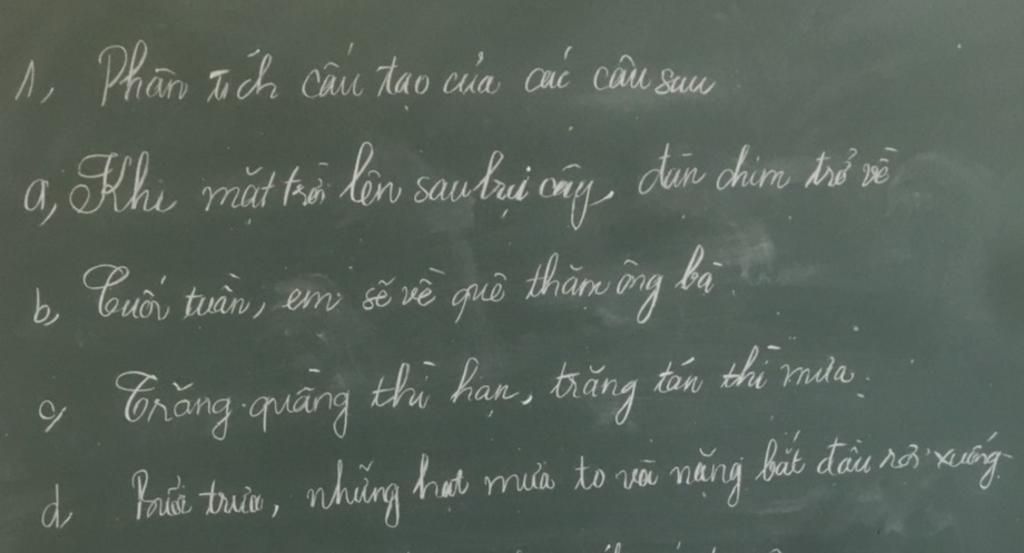 1, Phân tích cấu tạo của các câu sau
a, Khi mặt trời lên sau bụi cây, đàn chim trở về
b, Cuối tuần, em sẽ về quê thăm ông bà.
c, Trăng quầng thì hạn, trăng tán thì mưa.
d, Buổi trưa, những hạt mưa to và nặng bắt đầu rơi xuống